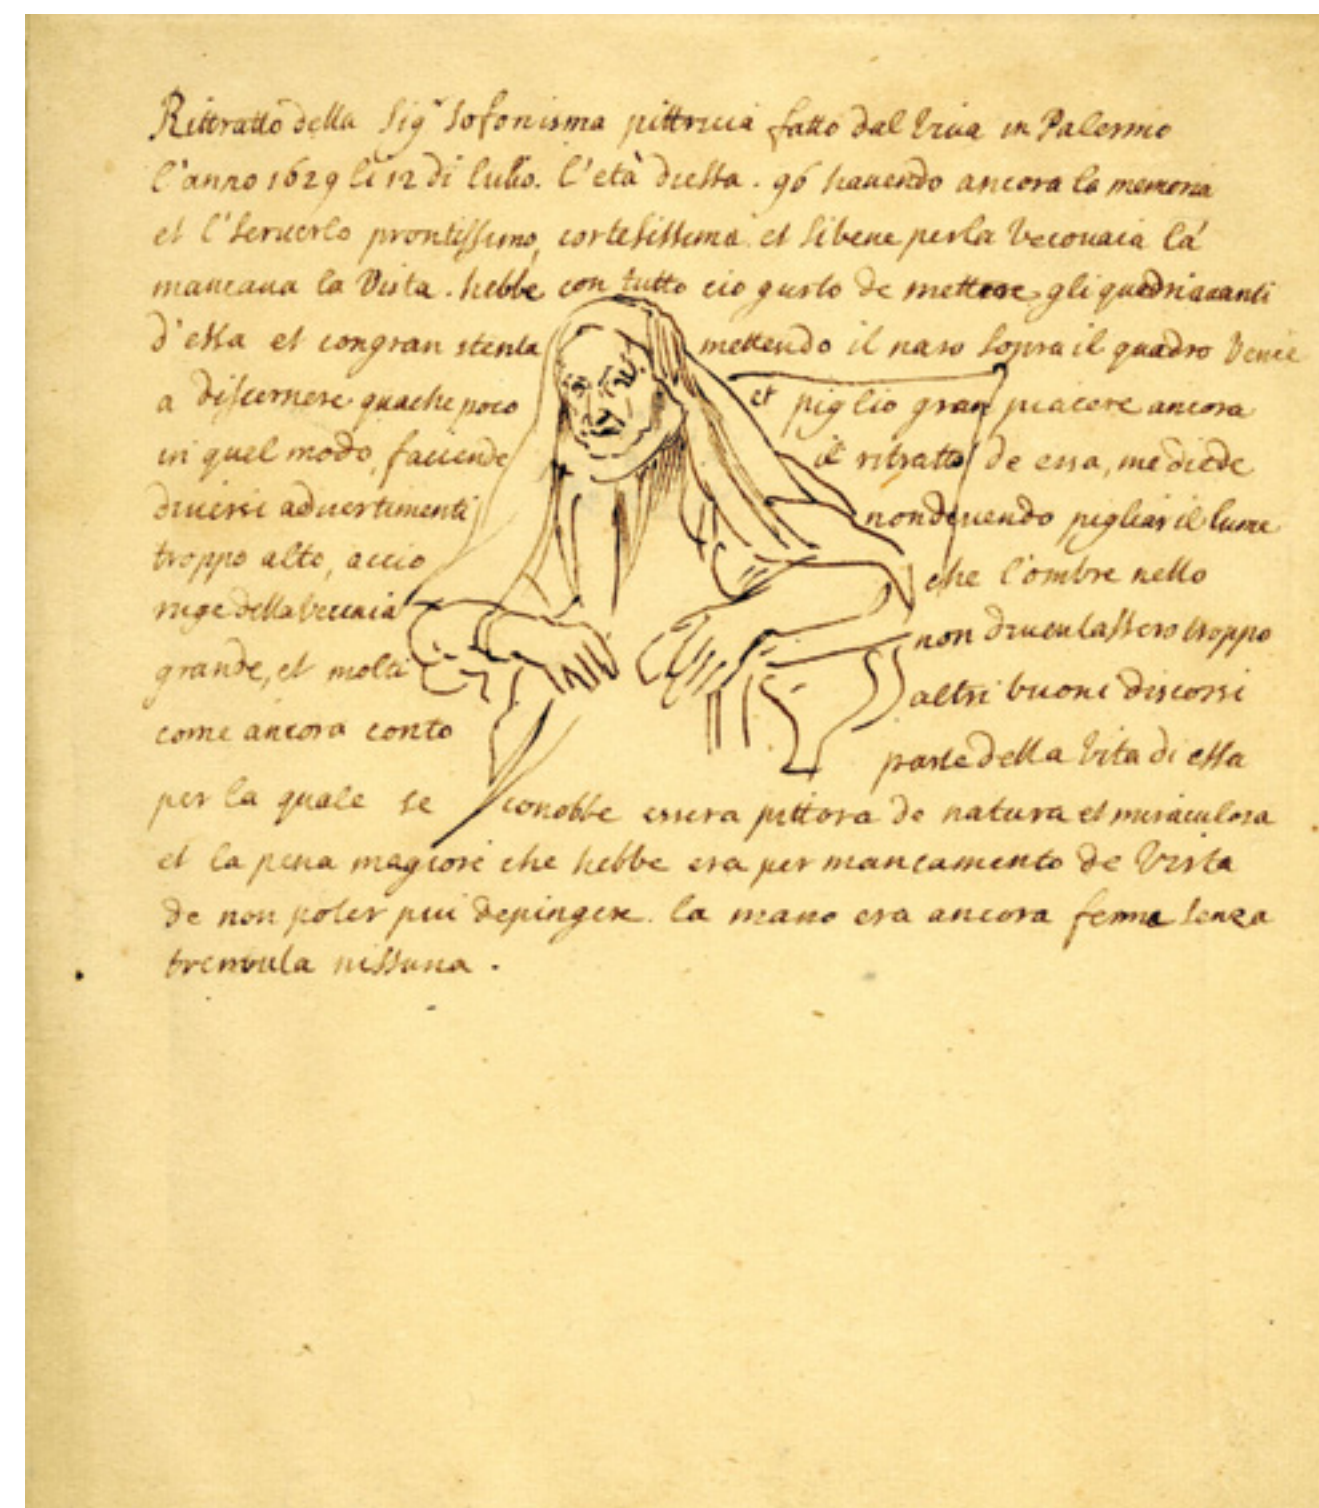 Rittratto della Sigra Sofonisma pittricia fatto dal viva in Palermo
l'anno 1629 li 12 di Julio. l'età di essa. 96 havendo ancora la memoria
et l' serverlo prontissimo, cortesissima. et sibene per la vecouaia la'
mancava la Vista. hebbe con tutto cio gusto de mettere gli quadri avanti
d'essa et con gran stenta mettendo il naso sopra il quadro Venie
a discernere qualche poco et piglio gran piacere ancora
in quel modo, faciendo il ritratto de essa, me diede
diversi advertimenti non devendo pigliar il lume
troppo alto, accio che l'ombre nello
ruge della vecciaia non diventassero troppo
grande, et molti altri buoni discorsi
come ancora conto parte della vita di essa
per la quale se conobbe essera pittora de natura et miraculosa
et la pena magiore che hebbe era per mancamento de Vista
de non poter piu depingere. la mano era ancora ferma senza
tremula nissuna.